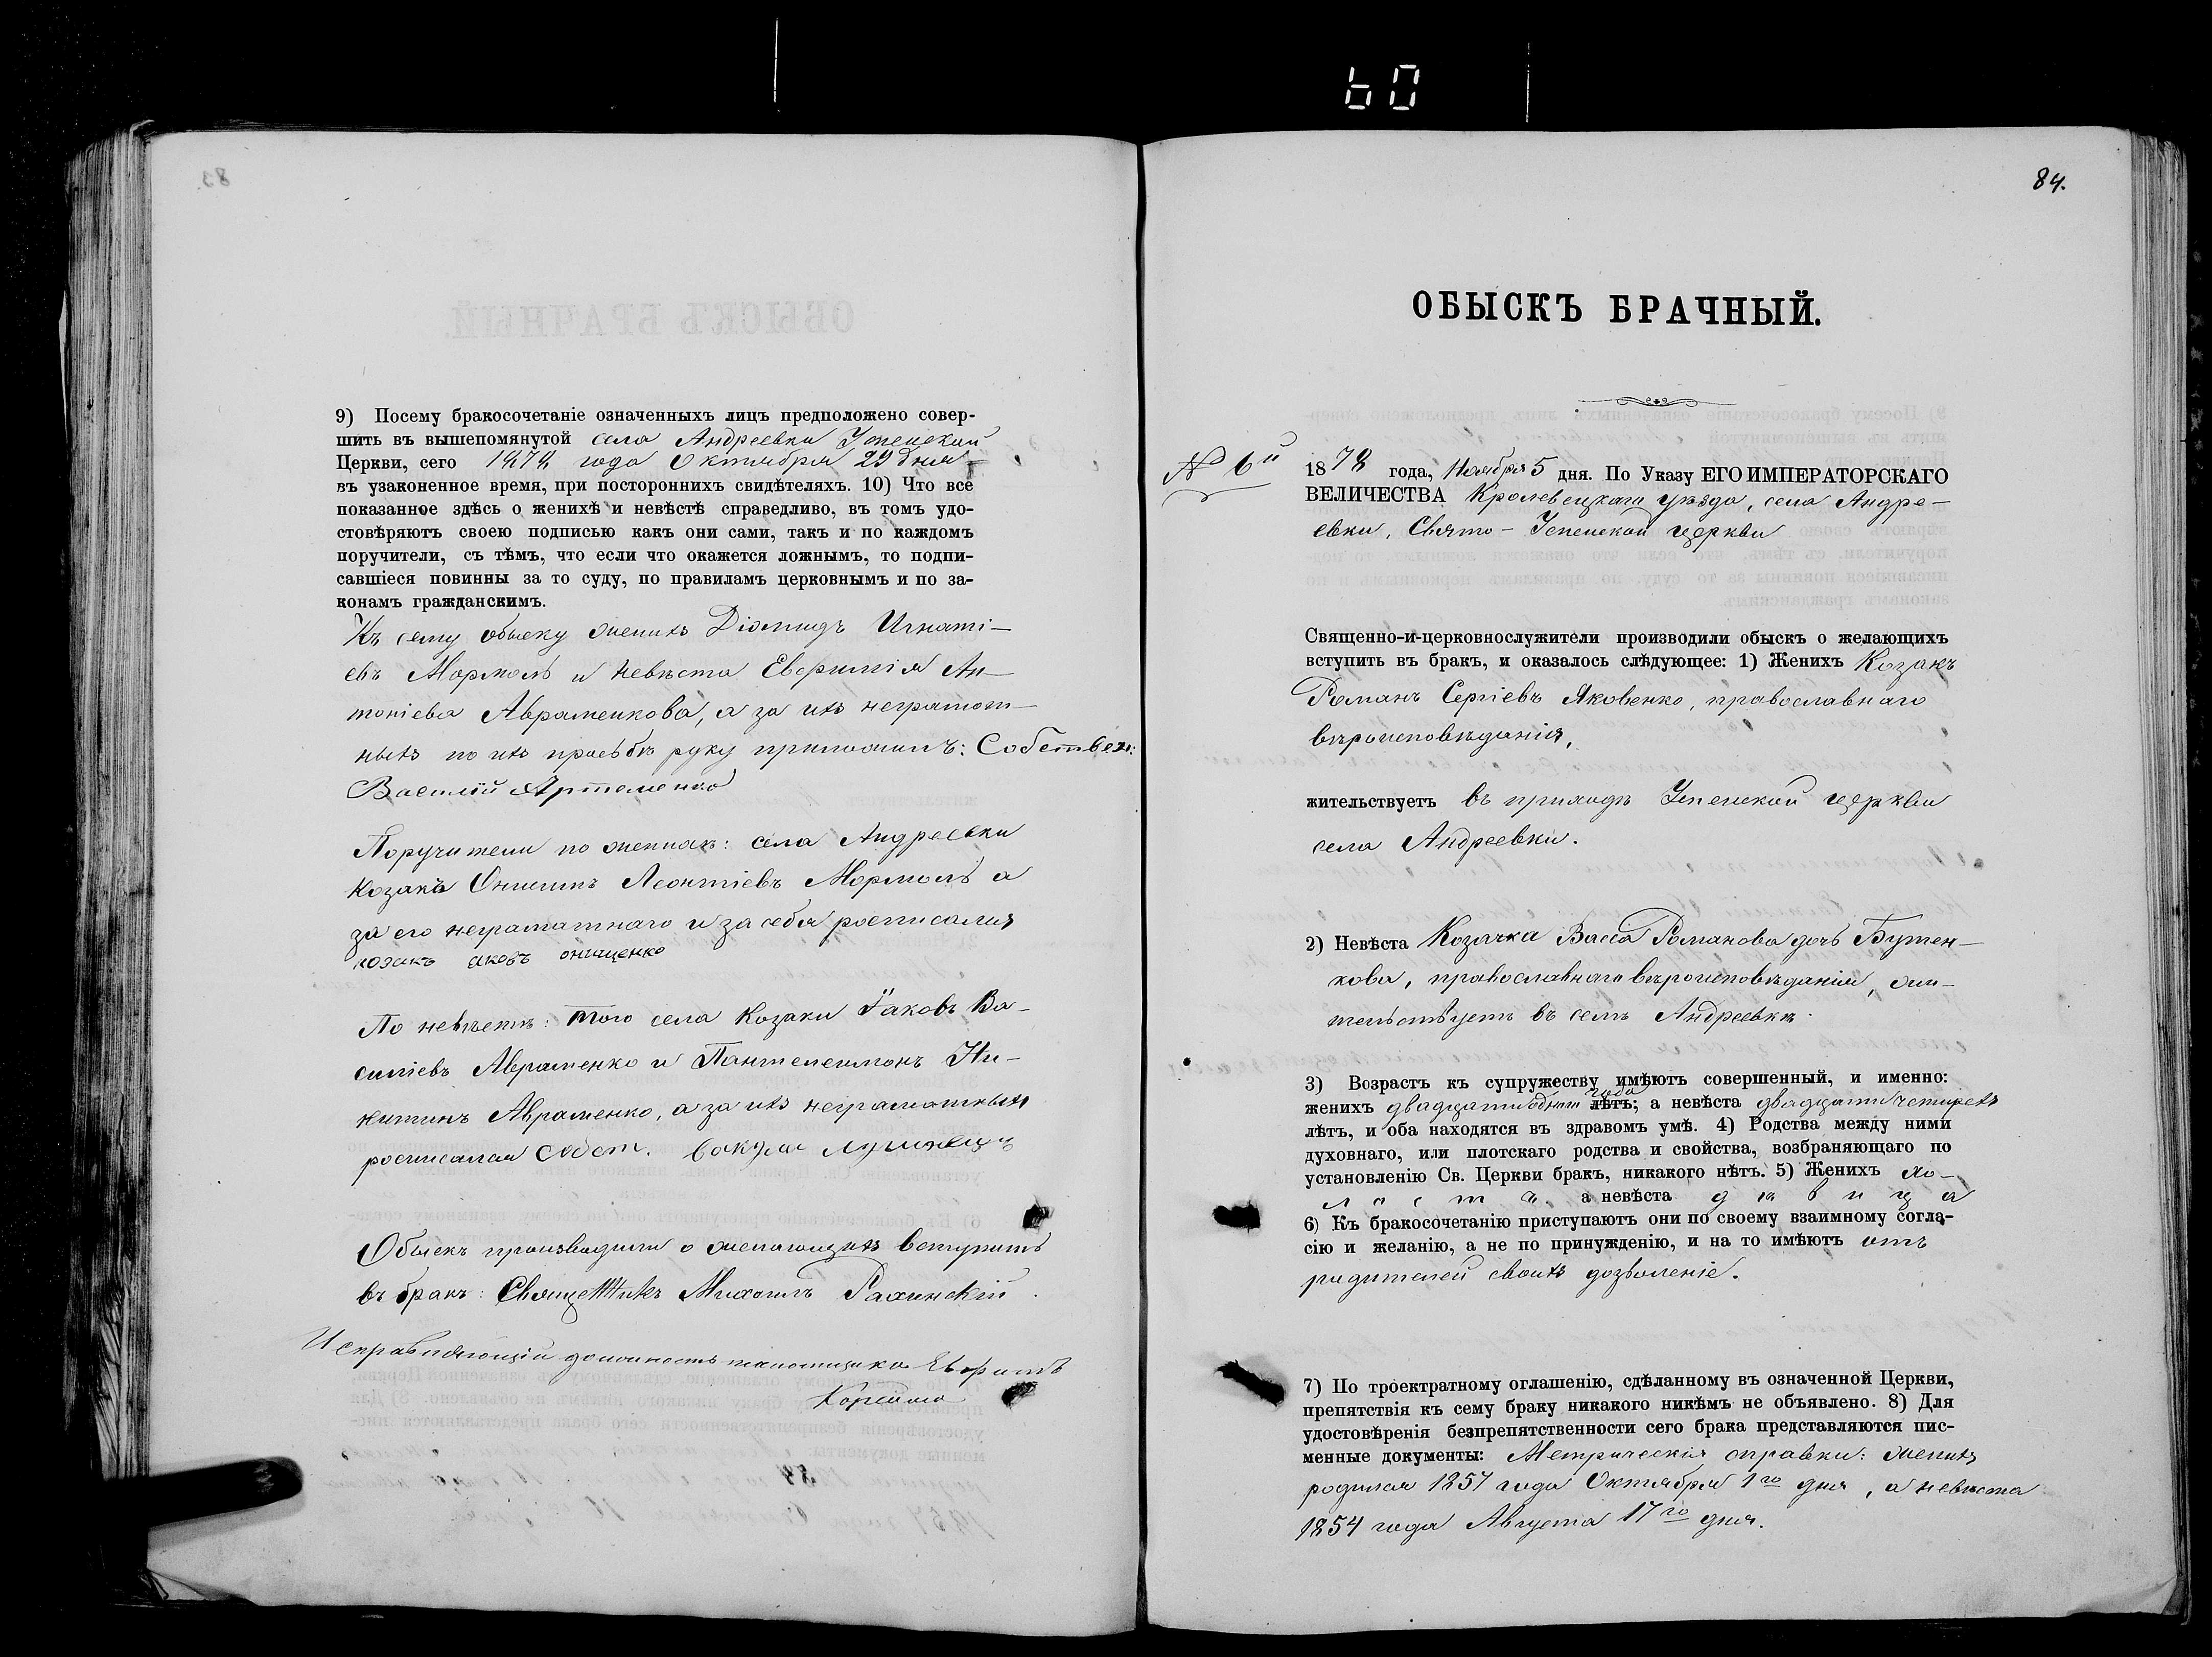 60
9) Посему бракосочетаніе означенныхъ лицъ предположено совер-
шить въ вышепомянутой села Андреевки Успенской
Церкви, сего 1878 года Октября 29 дня
въ узаконенное время, при постороннихъ свидѣтеляхъ. 10) Что все
показанное здѣсь о женихѣ и невѣстѣ справедливо, въ томъ удо-
стовѣряютъ своею подписью какъ они сами, такъ и по каждомъ
поручители, съ тѣмъ, что если что окажется ложнымъ, то подпи-
савшіеся повинны за то суду, по правиламъ церковнымъ и по за-
конамъ гражданскимъ.
Къ сему обыску женихъ Діомидъ Игнаті-
евъ Мормоль и невѣста Евфимія Ан-
тоніева Авраменкова, а за ихъ неграмот-
ныхъ по ихъ просьбѣ руку приложилъ: Собствен:
Василій Артеменко
Поручители по женихѣ: села Андреевки
Козакъ Онисимъ Леонтіевъ Мормоль а
за его неграматнаго и за себя росписался
козакъ яковъ онищенко
По невѣстѣ: того села Козаки Іаковъ Ва-
силіевъ Авраменко и Пантелеимонъ Ни-
китинъ Авраменко, а за ихъ неграмотныхъ
росписался собст.
Обыскъ производили о желающихъ вступить
въ бракъ: Священникъ Михаилъ Рахинскій
Исправляющій должность псаломщика Евфимъ
83.
84.
ОБЫСКЪ БРАЧНЫЙ.
№ 6й
1878 года, Ноября 5 дня. По Указу ЕГО ИМПЕРАТОРСКАГО
ВЕЛИЧЕСТВА Кролевецкаго уѣзда, села Андре-
евки, Свято-Успенской церкви
Священно-и-церковнослужители производили обыскъ о желающихъ
вступить въ бракъ, и оказалось слѣдующее: 1) Женихъ Козакъ
Романъ Сергіевъ Яковенко, православнаго
вѣроисповѣданія,
жительствуетъ въ приходѣ Успенской церкви
села Андреевки.
2) Невѣста Козачка Васса Романова дочь Бутен-
кова, православнаго вѣроисповѣданія, жи-
тельствуетъ въ селѣ Андреевкѣ.
3) Возрастъ къ супружеству имѣютъ совершенный, и именно:
женихъ двадцати одного года лѣтъ; а невѣста двадцати четырехъ
лѣтъ, и оба находятся въ здравомъ умѣ. 4) Родства между ними
духовнаго, или плотскаго родства и свойства, возбраняющаго по
установленію Св. Церкви бракъ, никакого нѣтъ. 5) Женихъ хо-
лостъ, а невѣста дѣвица
6) Къ бракосочетанію приступаютъ они по своему взаимному согла-
сію и желанію, а не по принужденію, и на то имѣютъ отъ
родителей своихъ дозволеніе.
7) По троектратному оглашенію, сдѣланному въ означенной Церкви,
препятствія къ сему браку никакого никѣмъ не объявлено. 8) Для
удостовѣренія безпрепятственности сего брака представляются пис-
менные документы: Метрическія справки: женихъ
родился 1857 года Октября 1го дня, а невѣста
1854 года Августа 17го дня.